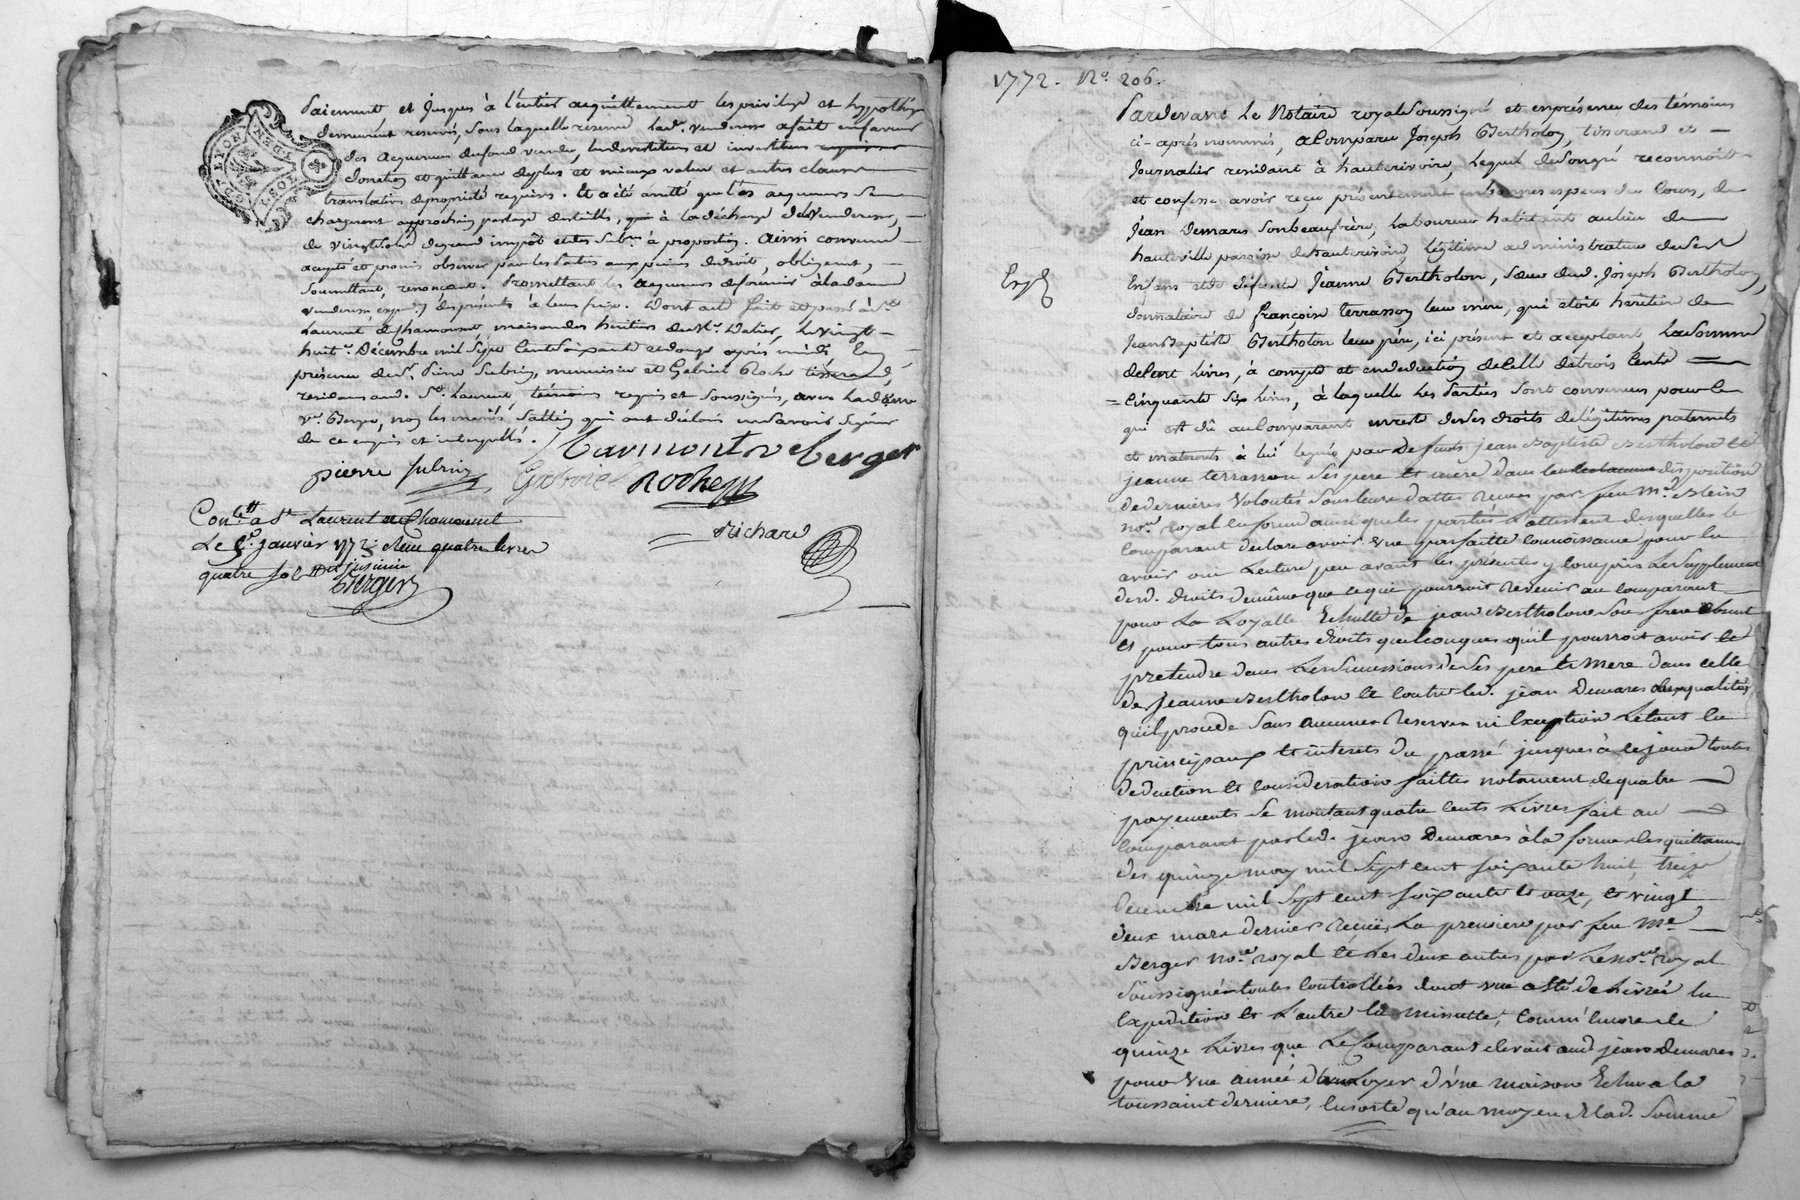 paiement et jusques à l'entier acquittement les privilege et hypothéque
demeurent reservés, sous laquelle reserve lad.e venderesse a fait en faveur
des acquereurs du fond vendu, les devestitures et investitures
donation et quittance de plus et mieux value et autres clauses
translatives de propriété requises. Et a été arrêté que les acquereurs se
chargeront au prochain partage des tailles, qui à la décharge de la venderesse,
de vingt sols de grand impôt et des sub.ns à proportion. Ainsi convenu
accepté et promis observer par les Parties aux peines de droit, obligeant,
soumettant, renonçant. Promettant les acquereurs de fournir à la dame
venderesse exp.on des présentes à leurs frix. Dont acte fait et passé à S.t
Laurent de Chamousset, maison des héritiers du Sr. Valier, le vingt
huit.e Décembre mil sept cent soixante et douze après midi, En
présence de Sr. Pierre Subrin, menuisier et Gabriel Roche tisserand,
residans aud. St. Laurent témoins requis et soussignés, avec la dame
v.e Berger, non les mariés qui ont déclaré ne savoir signer
de ce enquis et interpellés.
Marmont ve berger
pierre subrin Gabriel Roche
Richard
Con.llé a St Laurent de Chamousset
Le janvier 177 Reçu quatre livres
quatre sols
Berger
GEN. DE LYON
1772. No. 206.
Pardevant Le Notaire royal soussigné et en présence des témoins
ci-après nommés, a Comparu Joseph Bertholon, tisserand et
Journalier residant à hauterivoire, Lequel de son gré reconnoit
et confesse avoir reçu présentement en bonnes especes du Cours, de
Jean Demares son beaufrère, Laboureur habitant au lieu de
hauteville paroisse de hauterivoire, légitime administrateur de ses
Exp.é
Enfans et de défunte Jeanne Bertholon, sœur dud. Joseph Bertholon,
donnataire de françoise terrasson leur mère, qui étoit héritière de
Jean Baptiste Bertholon leur père, ici présent et acceptant, La Somme
de Cent Livres, à compte et en déduction de Celle de trois Cents
Cinquante six Livres, à laquelle les Parties sont convenues pour le
qui est dû au Comparant en reste de ses droits de légitimes paternels
et maternels à lui legués par defunts jean Baptiste Bertholon et
jeanne terrasson ses pere et mere dans leur disposition
de dernieres volontés sous leurs dattes receues par feu Me Blein
no.re royal en forme ainsi que les parties l'attestent desquelles le
comparant declare avoir une parfaitte connoissance pour les
avoir oui Lecture peu avant les présentes y compris Le Supplement
desd. droits de même que ce qui pourroit revenir au comparant
pour La Loyalle Echutte de jean Bertholon son frere absent
et pour tous autres droits quelconques qu'il pourroit avoir et
pretendre dans Les successions de ses pere et mere dans celle
de jeanne Bertholon et contre led. jean Demares aux qualités
qu'il procede sans aucunes reserves ni Exception Le tout en
principaux et interets du passé jusques à ce jour toutes
deduction et consideration faittes notament de quatre
payements se montant quatre cents Livres fait au
comparant par led. jean Demares à la forme des quittances
des quinze may mil sept cent soixante huit, treize
Decembre mil sept cent soixante et onze, et vingt
deux mars dernier reçües La premiere par feu Me
Berger no.re royal et Les deux autres par Le no.re royal
soussigné toutes controllées dont une a été delivrée en
Expedition et L'autre en minutte, comm'encore de
quinze Livres que Le Comparant devoit aud jean Demares
pour une année du Loyer d'une maison Echue a la
toussaint derniere, Ensorte qu'au moyen de lad. Somme